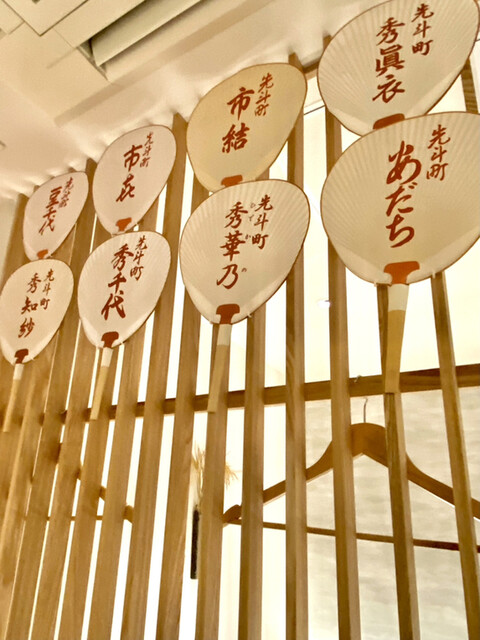 先斗町
先斗町
先斗町
市結
先斗町
秀眞衣
先斗町
秀知紗
先斗町
秀千代
先斗町
秀華乃
の
先斗町
あだち